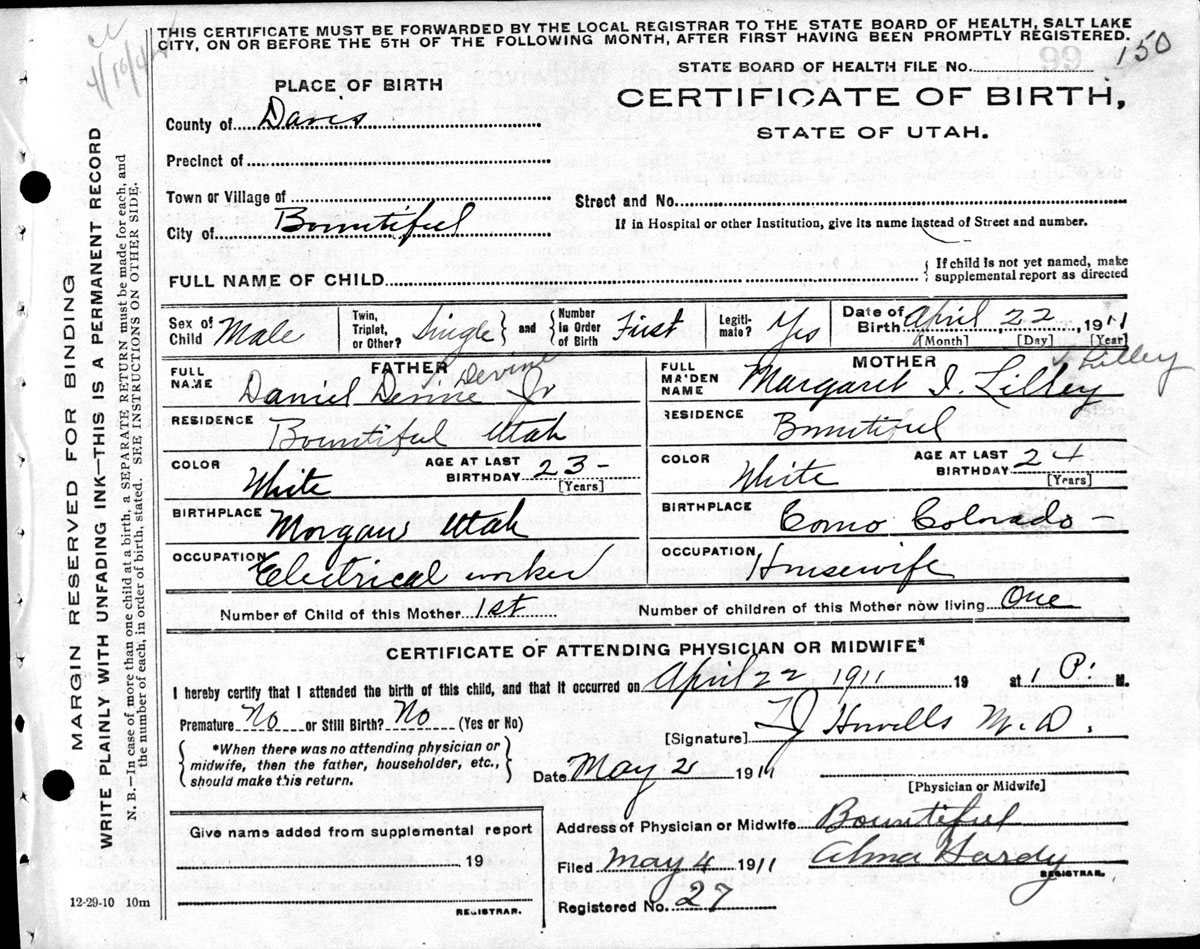 4/10/42
THIS CERTIFICATE MUST BE FORWARDED BY THE LOCAL REGISTRAR TO THE STATE BOARD OF HEALTH, SALT LAKE
CITY, ON OR BEFORE THE 5TH OF THE FOLLOWING MONTH, AFTER FIRST HAVING BEEN PROMPTLY REGISTERED.
MARGIN RESERVED FOR BINDING
WRITE PLAINLY WITH UNFADING INK—THIS IS A PERMANENT RECORD
N. B.—In case of more than one child at a birth, a SEPARATE RETURN must be made for each, and
the number of each, in order of birth, stated. SEE INSTRUCTIONS ON OTHER SIDE.
STATE BOARD OF HEALTH FILE No. 150
PLACE OF BIRTH
CERTIFICATE OF BIRTH,
STATE OF UTAH.
County of Davis
Precinct of
Town or Village of
Street and No.
City of Bountiful
If in Hospital or other Institution, give its name instead of Street and number.
FULL NAME OF CHILD
{ If child is not yet named, make
supplemental report as directed
Sex of Child Male
Twin, Triplet, or Other? Single } and { Number in Order of Birth First
Legiti-mate? Yes
Date of Birth April 22, 1911
[Month] [Day] [Year]
FATHER
FULL NAME Daniel Devine Jr
Devine
MOTHER
FULL MAIDEN NAME Margaret I. Lilley
Lilley
RESIDENCE Bountiful Utah
RESIDENCE Bountiful
COLOR White
AGE AT LAST BIRTHDAY 23-
[Years]
COLOR White
AGE AT LAST BIRTHDAY 24
[Years]
BIRTHPLACE Morgan Utah
BIRTHPLACE Como Colorado-
OCCUPATION Electrical worker
OCCUPATION Housewife
Number of Child of this Mother 1st
Number of children of this Mother now living One
CERTIFICATE OF ATTENDING PHYSICIAN OR MIDWIFE*
I hereby certify that I attended the birth of this child, and that it occurred on April 22 1911 19 at 1 P. M.
Premature No or Still Birth? No (Yes or No)
[Signature] M. D.
{ *When there was no attending physician or
midwife, then the father, householder, etc.,
should make this return. }
Date May 2 1911
[Physician or Midwife]
Give name added from supplemental report
19
REGISTRAR.
Address of Physician or Midwife Bountiful
Filed May 4 1911 Alma Hardy
REGISTRAR.
Registered No. 27
12-29-10 10m